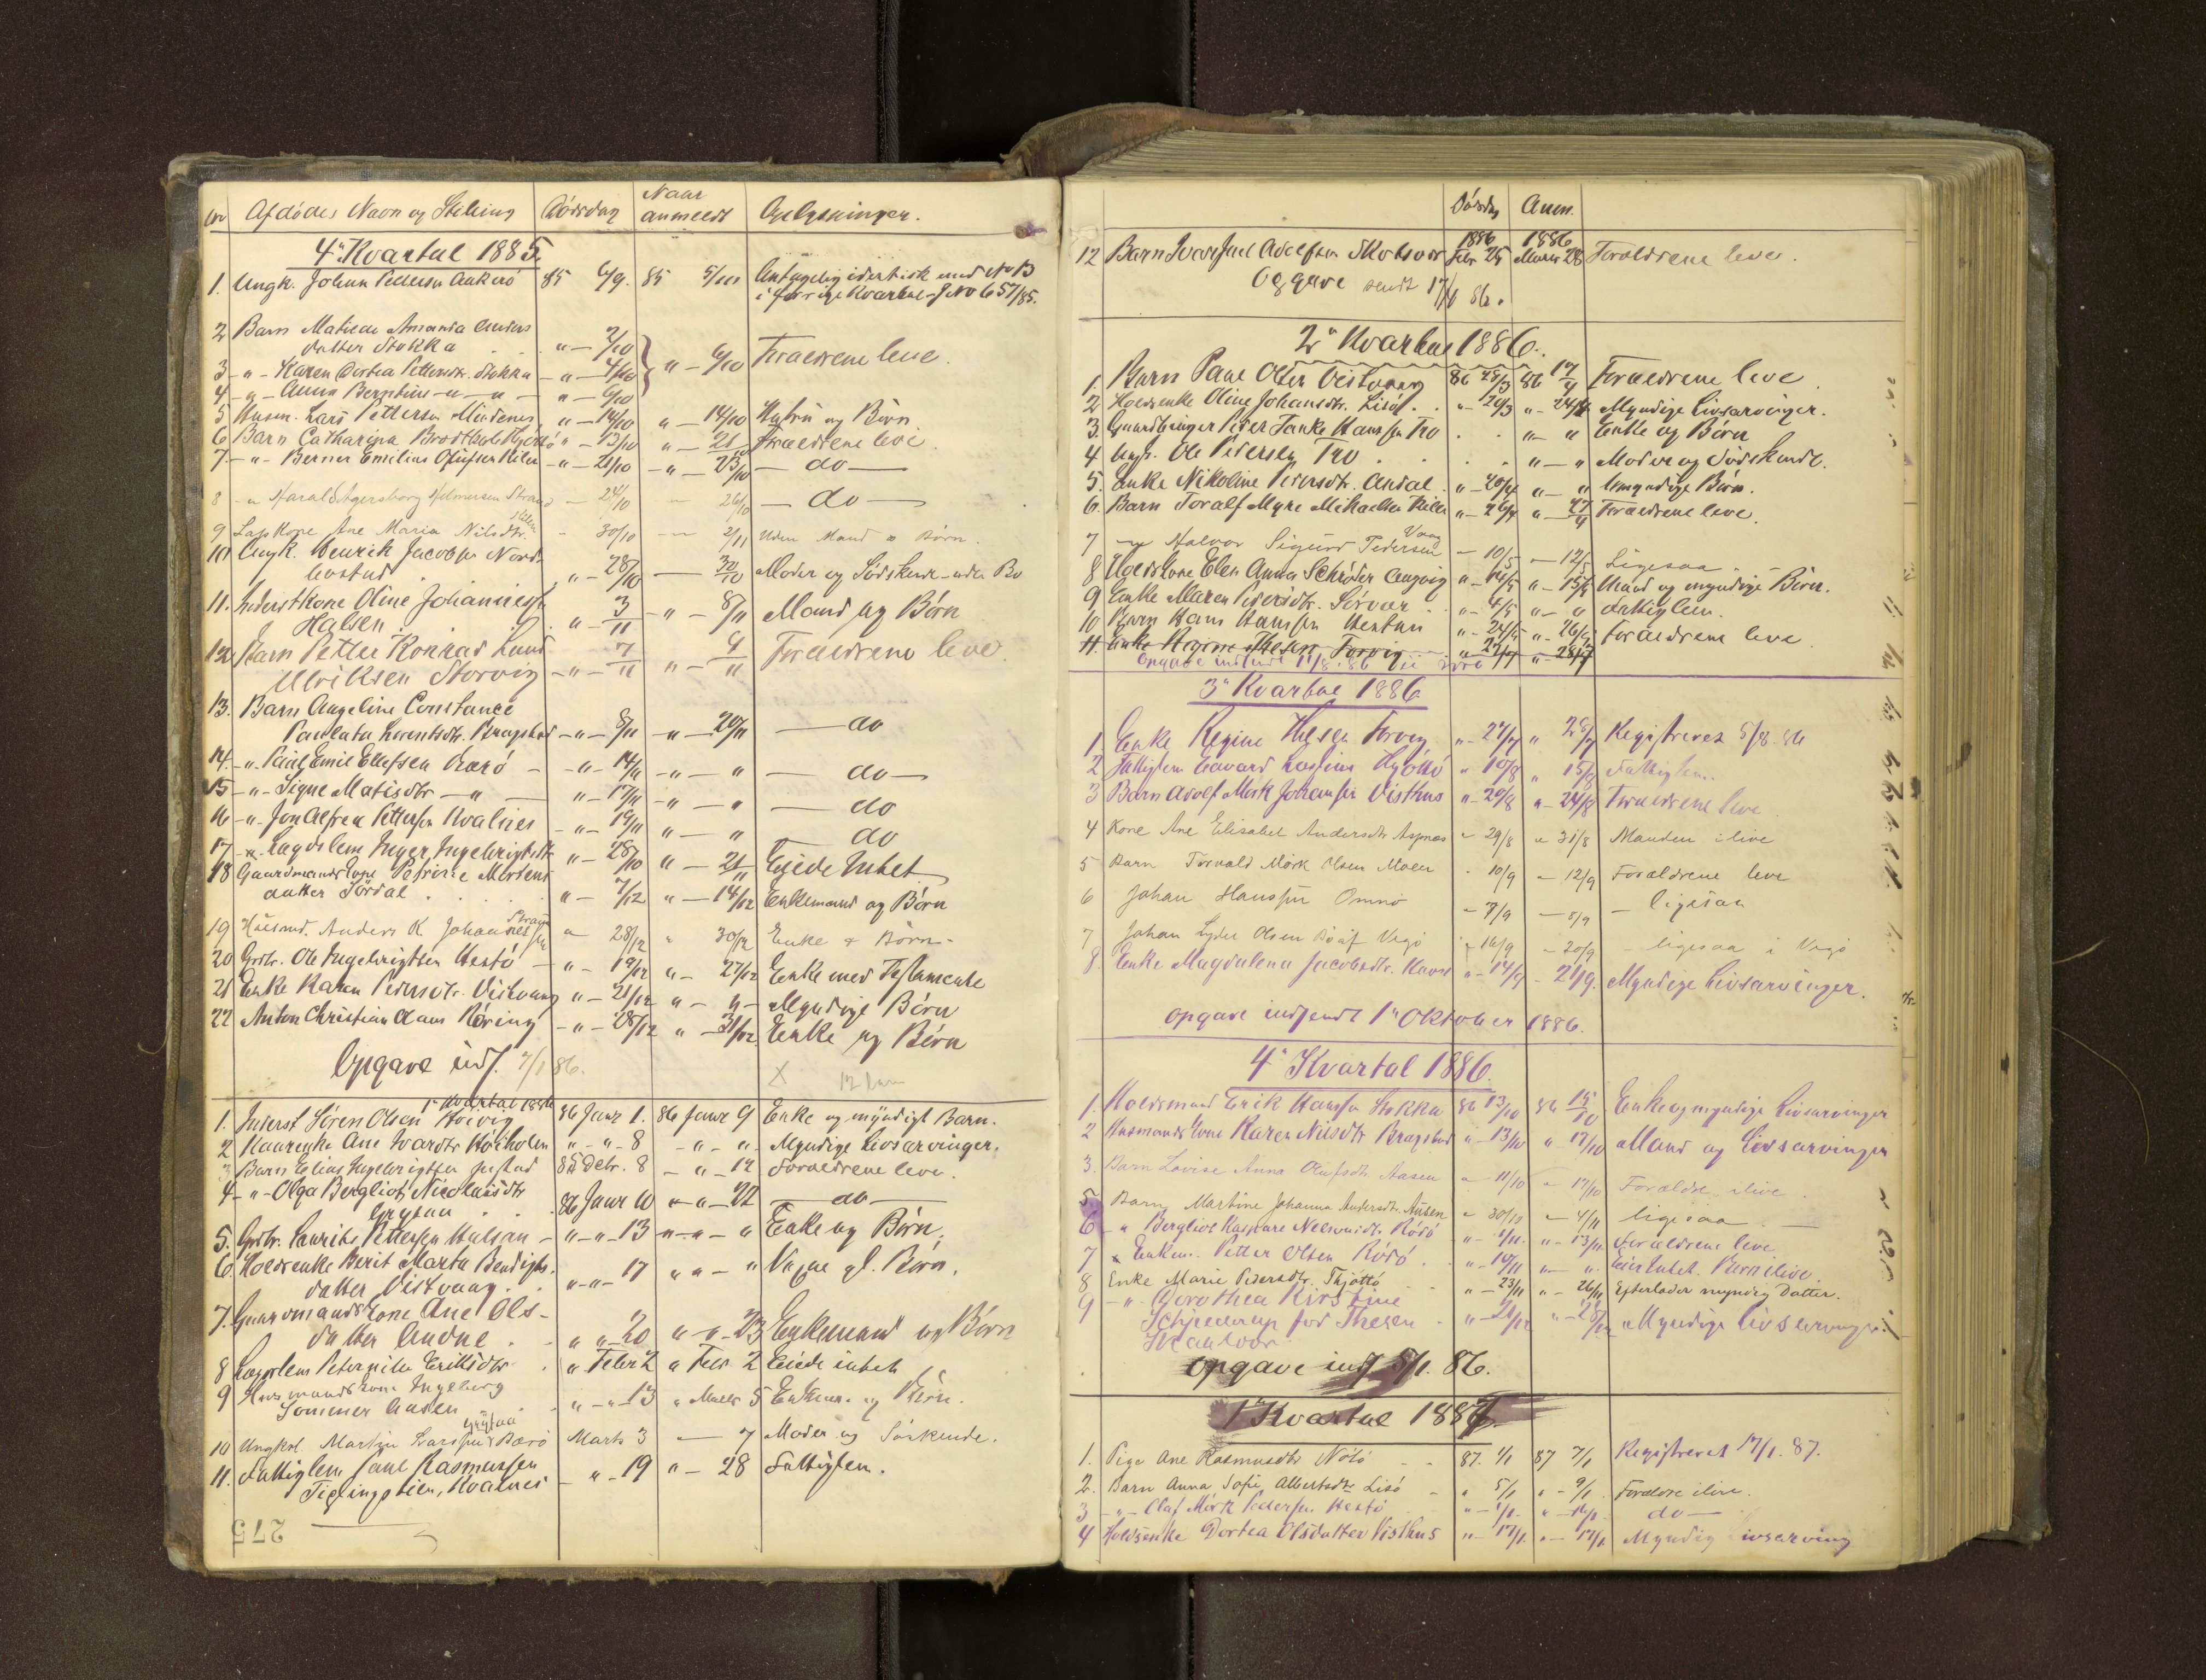 Nr Afdødes Navn og Stilling Dødsdag Naar anmeldt Oplysninger.
4de Kvartal 1885.
1. Ungk. Johan Pedersen 85 6/9. 85 5/10 Antagelig identisk med No 13
i forrige Kvartal - J No 657/85.
2 Barn Matilde Amanda Anders
datter Stokka " - 2/10
3 - " - Karen Dortea Pettersdtr. Stokka - " - 4/10 " - 6/10 Forældrene leve.
4 - " - Anna Berntine - " - " - " - 6/10
5 Husm. Lars Pettersen Mindenes " - 14/10 " - 14/10 Hustru og Børn
6 Barn Catharina Brodtkorb " - 13/10 " - 21 Forældrene leve
7 - " - Berner Emilius Olufsen - " - 21/10 - " - 23/10 - do -
8 - " Harald Agersborg Helmersen Strand - 24/10 - 26/10 - do -
9 Lapkone Ane Maria Nilsdtr. - 30/10 - 2/11 Uden Mand & Børn.
10 Ungk. Henrik Jacobsen Nord-
" - 28/10 - 30/10 Moder og Sødskende - uden Bo
11. Inderstkone Oline Johannesd
Halsen " - 3/11 - " - 8/11 Mand og Børn
12 Barn Petter Konrad Lund
Ulriksen Storvig - " - 7/11 " - 9/11 Forældrene leve
13. Barn Angeline Constance
Paulata Lorentsdtr. Bragstad - " - 8/11 - " - 20/11 - do
14. - " - Paul Emil Ellefsen Bærø - - " - 14/11 - " - " - do -
15 - " - Signe Matisdtr - " - " - 17/11 - " - " - do
16 - " - Jon Alfred Pettersen Kvalnes - " - 19/11 " - " do
17 - " - Lægdslem Inger Ingebrigtsdtr " - 28/10 " - 21/11 Eiede Intet
18 Gaardmandskone Petrine Mortens
datter Sørdal " - 7/12 " - 14/12 Enkemand og Børn
19 Husmd. Anders K Johannessen Strand " 28/12 " 30/12 Enke & Børn -
20 Grdbr. Ole Ingebrigtsen Hestø - " - 19/12 " - 27/12 Enke med Testamente
21 Enke Karen Pedersdtr. Vistvaag " - 21/12 " - " - Myndige Børn
22 Anton Christian Claus Røring - " - 28/12 " - 31/12 Enke og Børn
Opgave inds. 7/1 86.
X
1ste Kvartal 1886
1. Inderst Søren Olsen Høivig 86 Janr 1. 86 Janr 9 Enke og myndigt Barn.
2 Kaarenke Ane Ivarsdtr Kølholen " - " - 8 - " - " - Myndige Livsarvinger.
3 Barn Elias Ingebrigtsen 85 Debr. 8 - " - 12 Forældrene leve.
4 - " - Olga Bergliot Nicolaisdtr
Grytaa 86 Janr 10 - " - 22 - do -
5. Grdbr. Laurits Pettersen Halsan - " - " - 13 " - " - " Enke og Børn.
6 Holdsenke Berit Marta Bendigts-
datter Vistvaag. " - " - 17 " " - " Voxne gl. Børn.
7. Gaardmandskone Ane Ols-
datter Andne. " " - 20 " - " - 23 Enkemand og Børn
8 Lægdslem Peternille Eriksdtr. " Febr 2 " Febr 2 Eiede intet
9 Husmandskone Ingeborg
Sommer Aasen " - " - 13 " Marts 5 Enkem. og Børn.
10 Ungkrl Martin Ivarsen Grytaa Bærø Marts 3 - 7 Moder og Søskende.
11. Fattiglem Paul Rasmussen
Teglingslien, Kvalnes - " - 19 " - 28 Fattiglem.
275
Dødsdag Anm.
1886 1886
12 Barn Adolfsen Skotsvær Febr 25 Marts 28 Forældrene leve.
Opgave sendt 17/4 86.
2det Kvartal 1886.
1. Barn Paul Olsen Vistvaag 86 28/3 86 17/4 Forældrene leve.
2 Holdsenke Oline Johansdtr. Lisø. " - 20/3 " - 24/4 Myndige Livsarvinger.
3. Gaardbruger Peder Tanke Hanssen Tro " - " Enke og Børn
4 Ungk. Ole Pedersen Tro " - " Moder og Sødskende.
5. Enke Nikoline Pedersdtr. Ausdal. " - 20/4 " - " Umyndige Børn.
6. Barn Toralf Myre Mikaelsen " - 26/4 " - 27/4 Forældrene leve.
7 - " Halvor Sigurd Pedersen Vaag - 10/5 - 12/5 Ligesaa -
8 Holdskone Elen Anna Schrøder Augvig " - 14/5 " - 15/5 Mand og myndige Børn.
9 Enke Maren Pedersdtr. Sørvær " - 4/5 " - " Fattiglem.
10 Barn Hans Hanssen Hestun " - 24/5 " - 26/5 Forældrene leve
11. Enke Regine Thesen Forvig " 27/7 " 28/7
Opgave indsendt 11/8. 86
3die Kvartal 1886
1. Enke Regine Thesen Forvig " - 27/7 " 28/7 Registreret 5/8. 86
2 Fattiglem Edvard " 10/8 " 15/8 Fattiglem.
3 Barn Adolf Mørk Johansen Visthus " - 20/8 " - 24/8 Forældrene leve
4 Kone Ane Elisabet Andersdtr Aspnes - 29/8 " 31/8 Manden i live
5 Barn Torvald Mørk Olsen Moen - 10/9 - 12/9 Forældrene leve
6 Johan Hanssen Omnø - 7/9 - 8/9 - ligesaa
7 Johan Lyder Olsen Vegø " 16/9 - 20/9 - ligesaa i Vegø
8. Enke Magdalena Jacobsdtr. " - 14/9 - 21/9. Myndige Livsarvinger.
Opgave indsendt 1ste Oktober 1886.
4de Kvartal 1886.
1. Holdsmand Erik Hanssen Stokka 86 13/10 86 15/10 Enke og myndige Livsarvinger
2 Husmandskone Karen Nilsdtr Bragstad " - 13/10 " 17/10 Mand og Livsarvinger
3. Barn Lovise Anna Olufsdtr Aasen - 11/10 - 17/10 Forældr. i live.
5 Barn Martine Johanna Andersdtr. Aasen - 30/10 - 4/11 ligesaa -
6 - " Bergliot Kaspare Rødø " - 4/11. " - 13/11 Forældrene leve
7 " Enkem. Petter Olsen Rødø. " - 10/11 " - " Eier Intet. Børn i live.
8 Enke Marie Pedersdtr. Thjøttø " - 23/11 " - 26/11 Efterlader myndig Datter.
9 - " - Dorothea Kirstine
Schjelderup fød Thesen " - 21/12 " - 28/12 Myndige Livsarvinger.
Opgave inds 5/1. 86.
1ste Kvartal 1887.
1. Pige Ane Rasmusdtr Nøtø - - 87. 1/1 87 7/1 Registreret 17/1. 87.
2. Barn Anna Sofie Albertsdtr Lisø - " 5/1 " - 9/1 Forældre i live.
3 - " - Olaf Mørk Pedersen Hestø do -
4 Holdsenke Dortea Olsdatter Visthus " - 17/1. " - 17/1. Myndig Livsarving